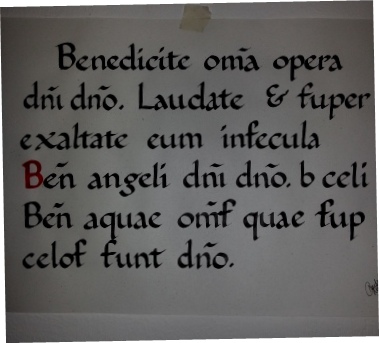 Benedicite om̅a opera
dn̅i dn̅o. Laudate & ſuper
exaltate eum inſecula
Ben̅ angeli dn̅i dn̅o. b celi
Ben̅ aquae om̅ſ quae ſup
celoſ ſunt dn̅o.